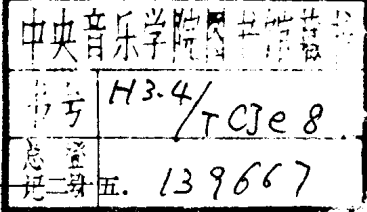 中央音乐学院图书馆藏书
书号 H3.4/TCJe8
总登记号 五. 139667